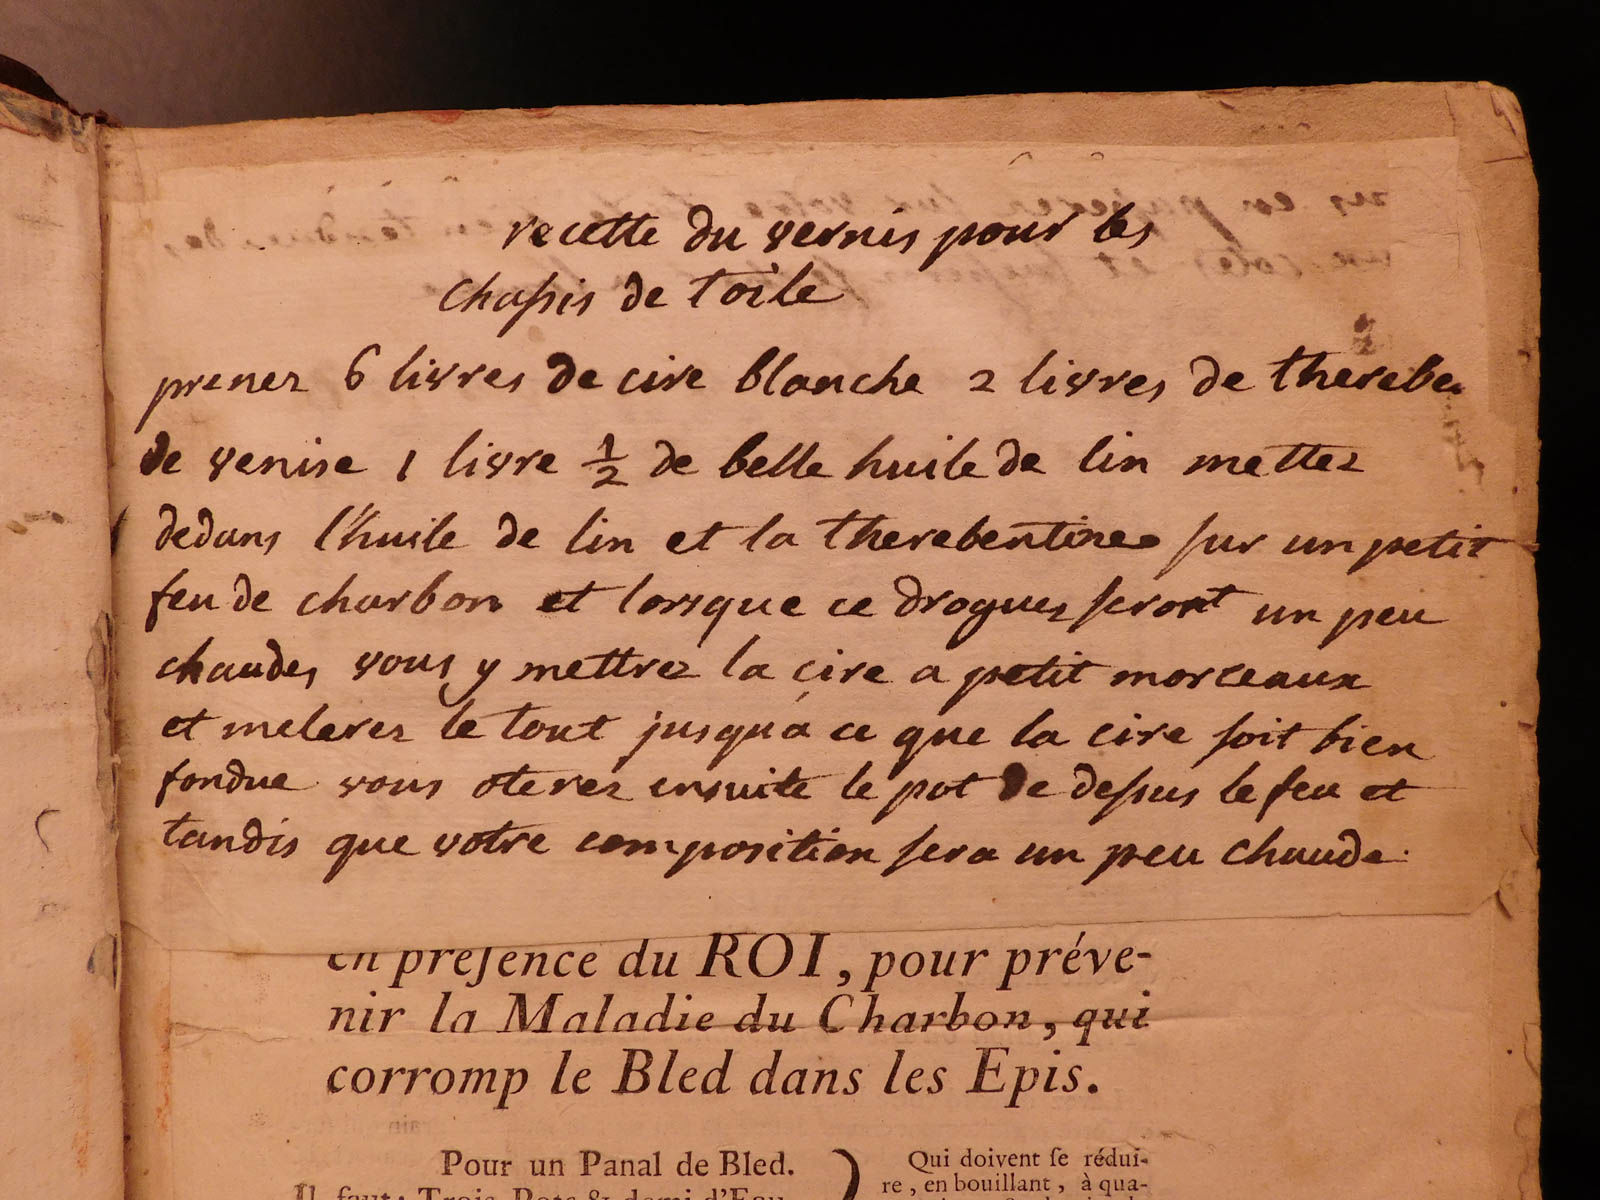 recette du vernis pour les
chaſsis de toile
prenez 6 livres de cire blanche 2 livres de therebe
de venise 1 livre 1/2 de belle huile de lin mettez
dedans l'huile de lin et la therebentine ſur un petit
feu de charbon et lorsque ce drogues ſeront un peu
chaudes vous y mettrez la cire a petit morceaux
et melerez le tout jusqu'a ce que la cire ſoit bien
fondue vous oterez ensuite le pot de deſsus le feu et
tandis que votre composition ſera un peu chaude.
en preſence du ROI, pour préve-
nir la Maladie du Charbon, qui
corromp le Bled dans les Epis.
Pour un Panal de Bled.
Il faut: Trois Pots & demi d'Eau
Qui doivent ſe rédui-
re, en bouillant, à qua-